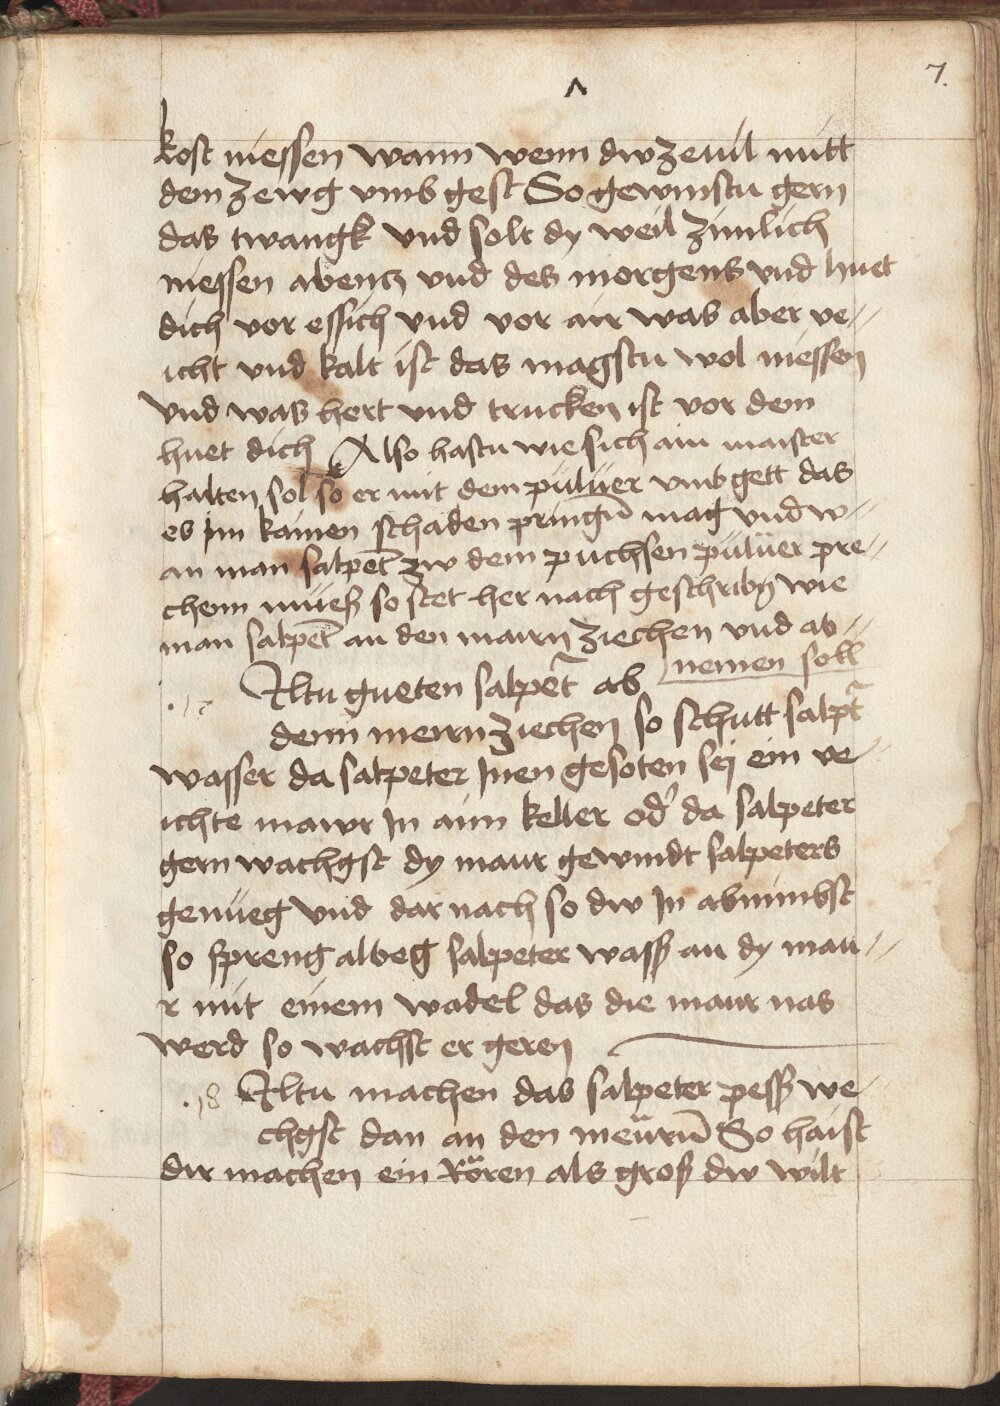 7.
kost niessen wann wenn dw zeuil mitt
dem zewg vmb gest So gewinstu gern
das twangk vnd solt dy weil zimlich
niessen abencz vnd des morgens vnd huet
dich vor essich vnd vor air was aber ve//
icht vnd kalt ist das magstu wol niessen
vnd was hert vnd trucken ist vor dem
huet dich Also hastu wie sich ain maister
halten sol so er mit dem puluer vmb gett das
es im kainen schaden pringn̄ mag vnd w//
an man salpet̄ zw dem puchsen puluer pre//
chenn mueß so stet her nach geschribn̄ wie
man salpet̄ an den maurn ziechen vnd ab//
nemen soll
.17. Wiltu gueten salpet̄ ab
denn meirn ziechen so schutt salpt̄
wasser da salpeter Inen gesoten sej ein ve//
ichte mawr In aim keller od' da salpeter
gern wachgst dy maur gewindt salpeters
genueg vnd dar nach so dw In abnimbst
so spreng albeg salpeter wass an dy mau//
r mit einem wadel das die maur nas
werd so wachst er geren
.18 Wiltu machen das salpeter pess we//
chgst dan an den meurn̄ So haist
dir machen ein Rören als groß dw wilt